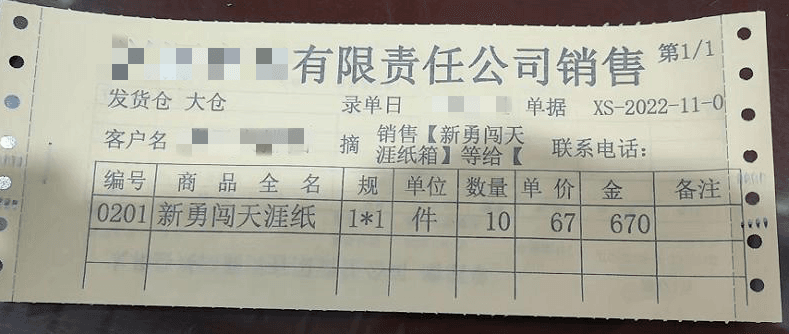 有限责任公司销售 第1/1
发货仓 大仓 录单日 单据 XS-2022-11-0
客户名 摘 销售【新勇闯天
涯纸箱】等给【 联系电话:
编号 商品全名 规 单位 数量 单价 金 备注
0201 新勇闯天涯纸 1*1 件 10 67 670